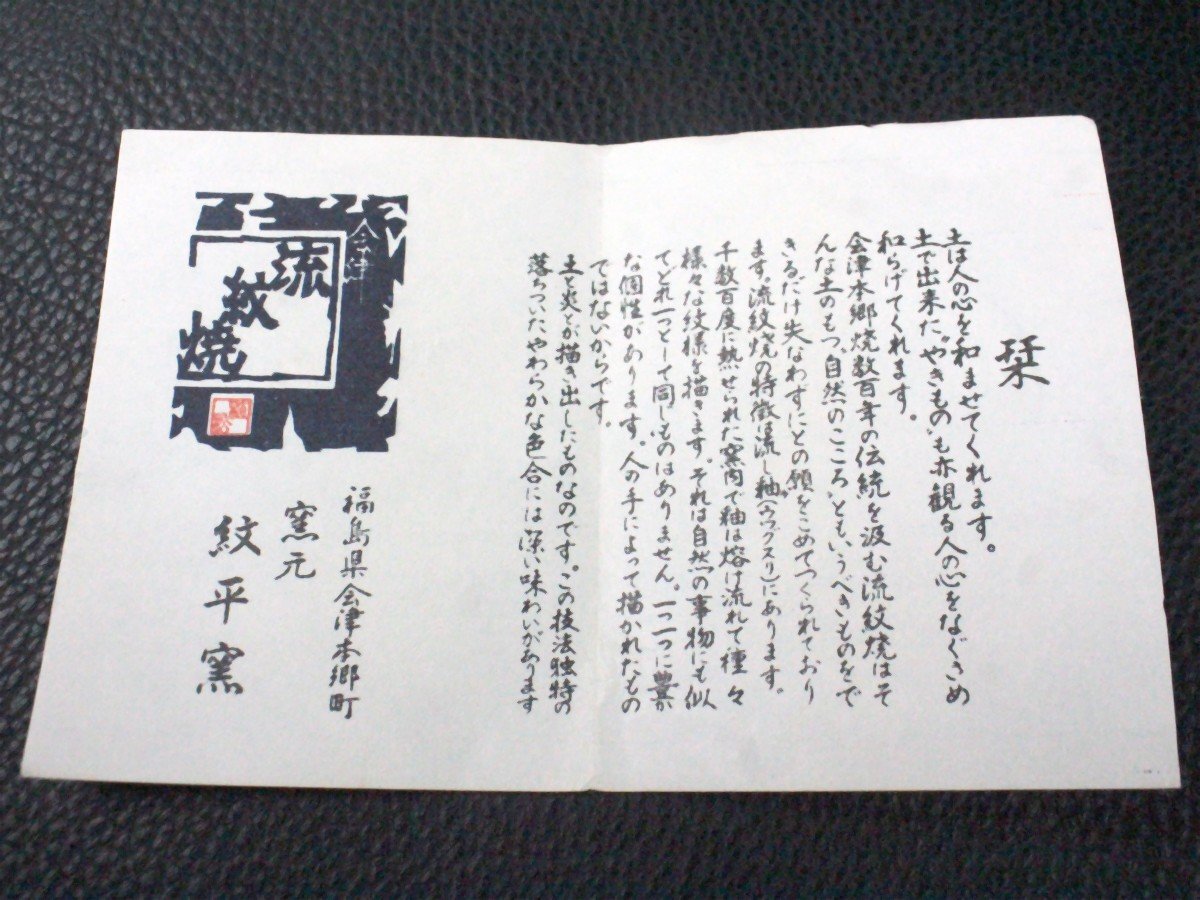 栞
土は人の心を和ませてくれます。
土で出来た〝やきもの〟も亦観る人の心をなぐさめ
和らげてくれます。
会津本郷焼数百年の伝統を汲む流紋焼はそ
んな土のもつ〝自然のこころ〟ともいうべきものをで
きるだけ失なわずにとの願をこめてつくられており
ます。流紋焼の特徴は流し釉(ウワグスリ)にあります。
千数百度に熱せられた窯内で釉は熔け流れて種々
様々な紋様を描きます。それは自然の事物にも似
てどれ一つとして同じものはありません。一つ一つに豊か
な個性があります。人の手によって描かれたもの
ではないからです。
土と炎とが描き出したものなのです。この技法独特の
落ちついたやわらかな色合には深い味わいがあります
会津
流紋焼
福島県会津本郷町
窯元
紋平窯